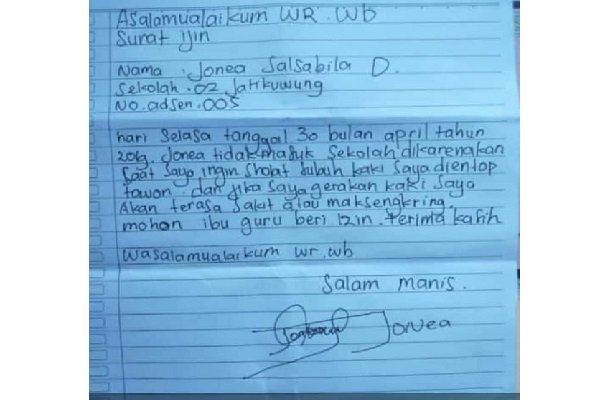 Asalamualaikum WR. Wb
Surat ijin
Nama : Jonea Salsabila D.
Sekolah . 02 Jatikuwung
No. adsen. 005
hari Selasa tanggal 30 bulan april tahun
2019. Jonea tidak masuk sekolah dikarenakan
Saat Saya ingin Sholat Subuh kaki Saya dientop
tawon. dan jika Saya gerakan kaki Saya
Akan terasa Sakit atau maksengkring.
mohon ibu guru beri izin. terima kasih
Wasalamualaikum wr. wb
Salam manis.
Jonea